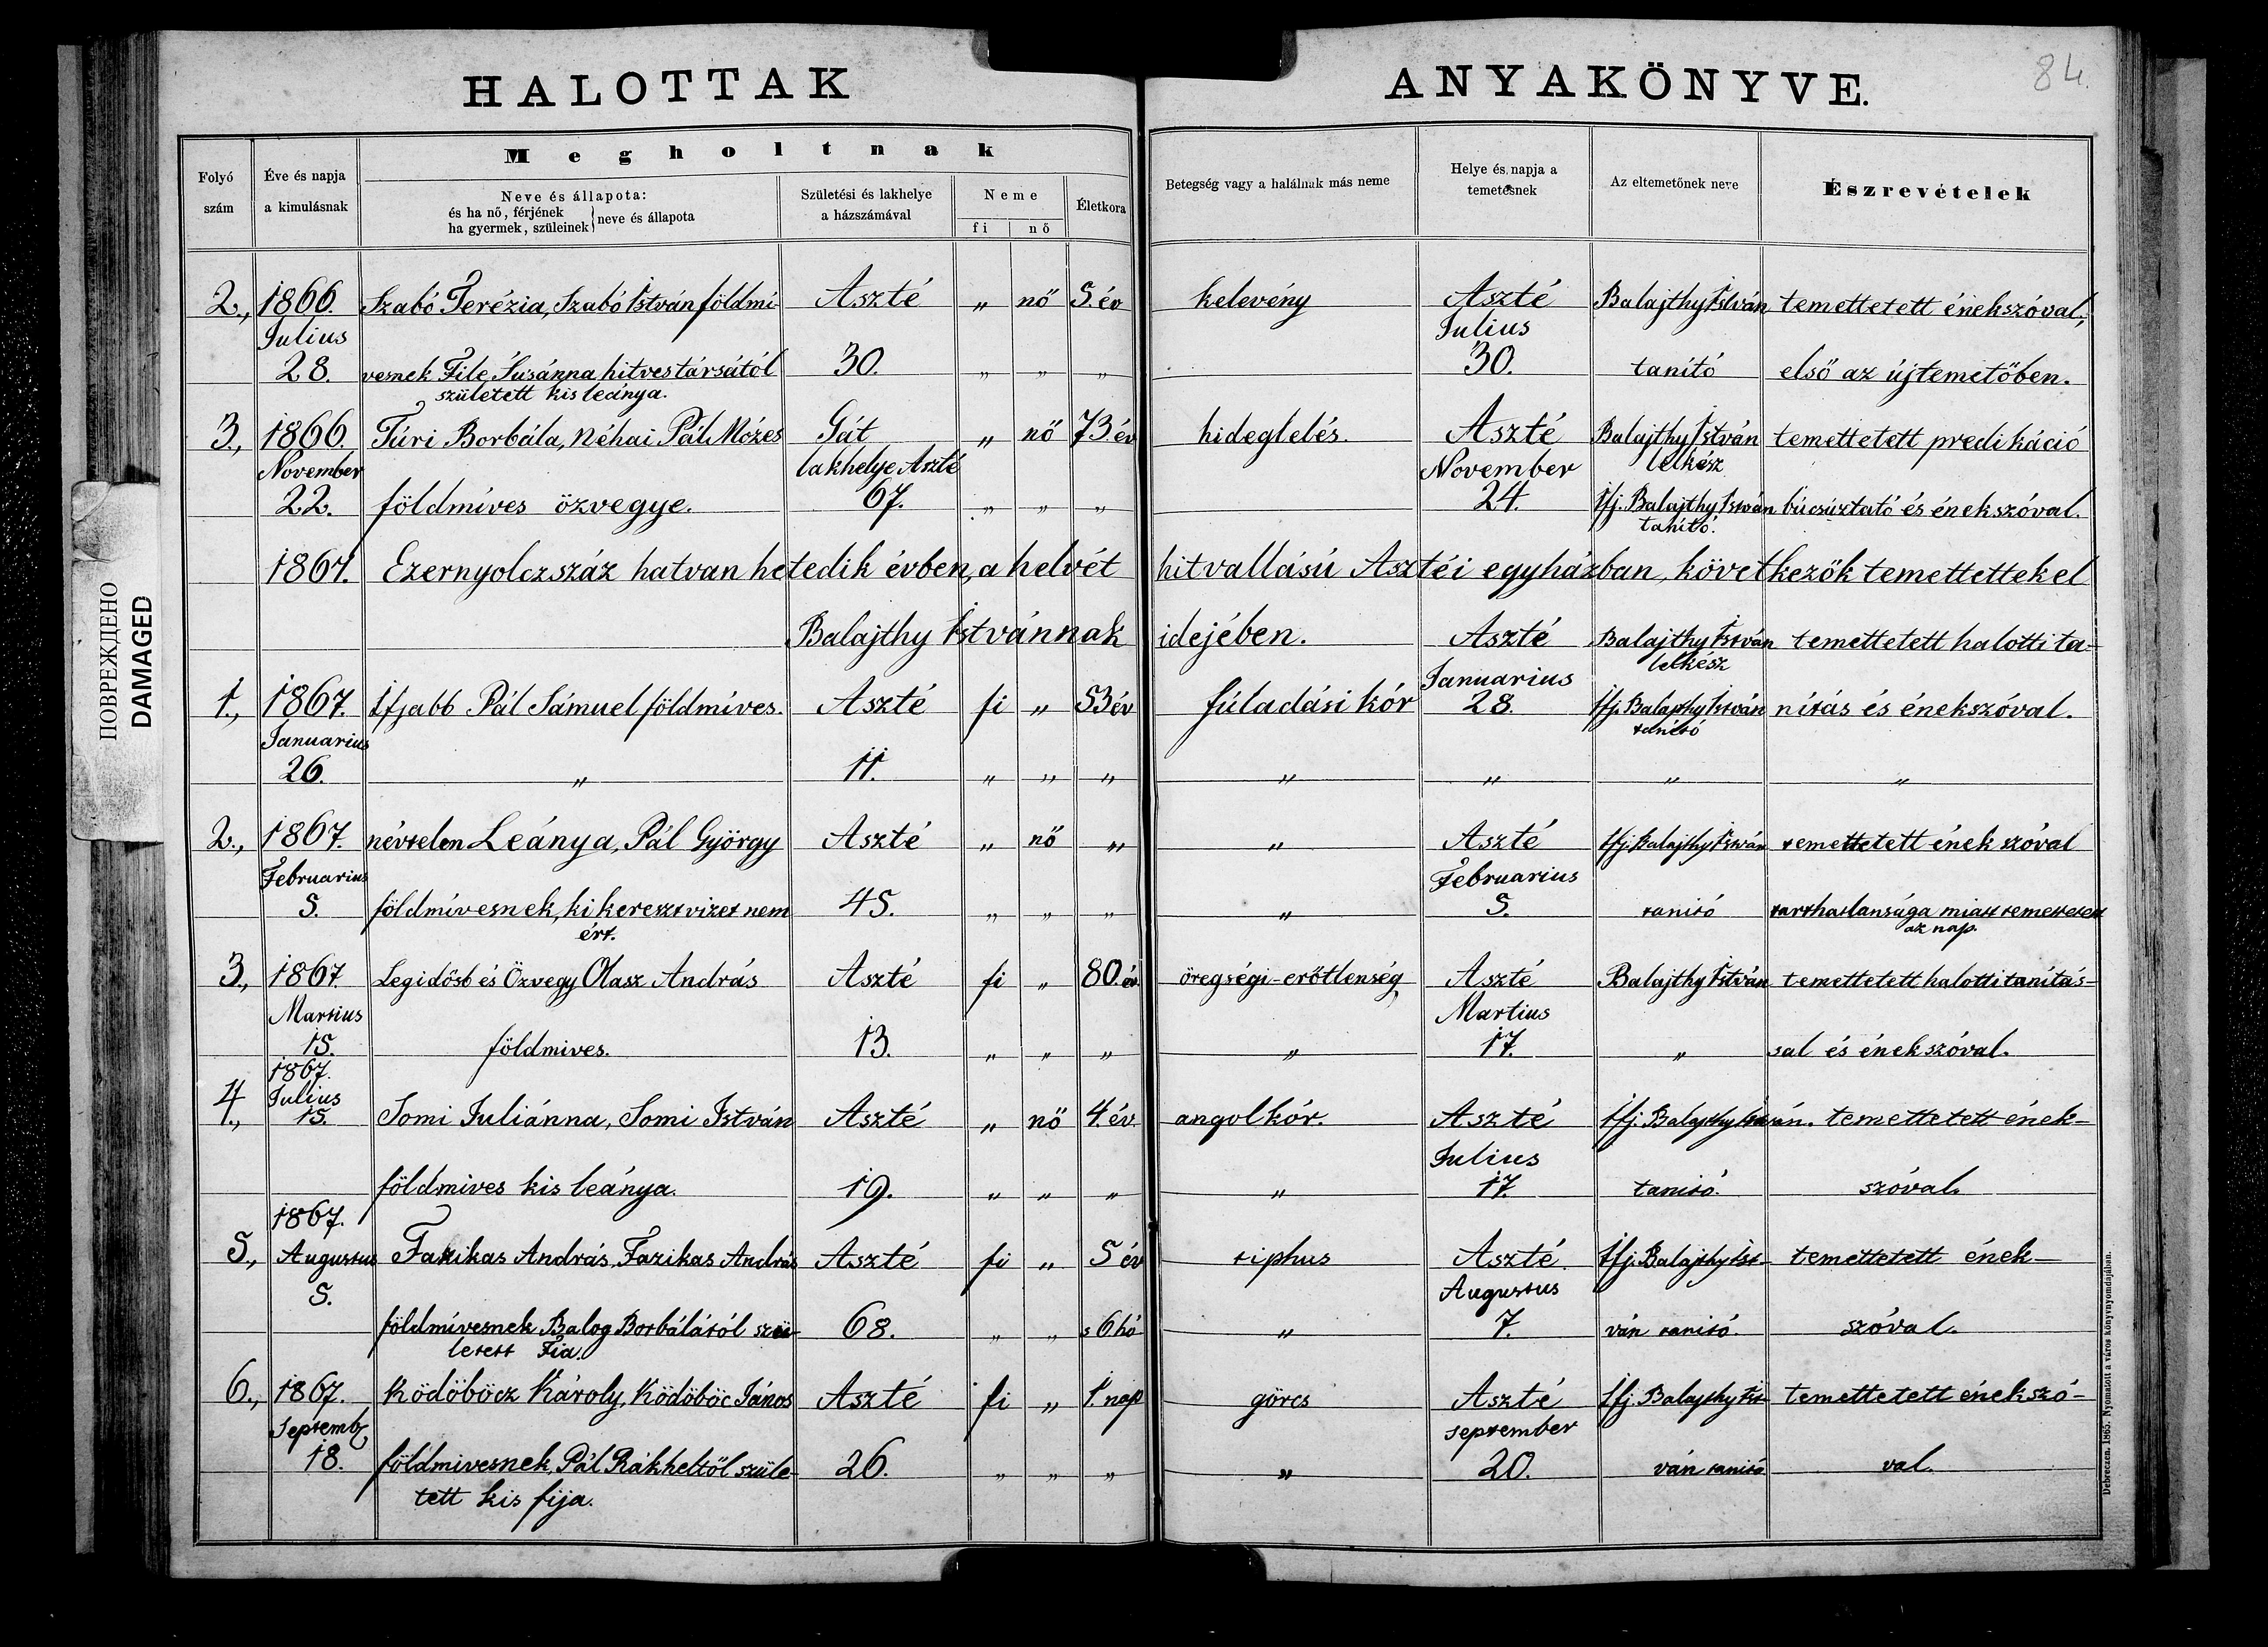 HALOTTAK ANYAKÖNYVE.
84.
ПОВРЕЖДЕНО
DAMAGED
Folyó szám
Éve és napja a kimulásnak
Megholtnak
Neve és állapota:
és ha nő, férjének
ha gyermek, szüleinek } neve és állapota
Születési és lakhelye a házszámával
Neme
fi nő
Életkora
Betegség vagy a halálnak más neme
Helye és napja a temetésnek
Az eltemetőnek neve
Észrevételek
2., 1866. Szabó Terézia, Szabó István földmi- Aszté „ nő 5. év kelevény Aszté Balajthy István temettetett énekszóval,
Julius Julius
28. vesnek File Susánna hitvestársától 30. „ „ „ 30. tanító első az újtemetőben.
született kis leánya.
3., 1866. Túri Borbála, Néhai Pál Mózes Gát „ nő 73 év hideglelés. Aszté Balajthy István temettetett predikáció
November lakhelye Aszté November lelkész
22. földmíves özvegye. 67. „ „ „ 24. Ifj. Balajthy István búcsúztató és énekszóval.
tanító.
1867. Ezernyolczszáz hatvan hetedik évben, a helvét hitvallású Asztéi egyházban, következők temettettek el
Balajthy Istvánnak idejében. Aszté Balajthy István temettetett halotti ta-
Januarius lelkész
1., 1867. Ifjabb Pál Sámuel földmíves. Aszté fi „ 53 év fúladási kór 28. Ifj. Balajthy István nítás és énekszóval.
Januarius tanító
26. „ 11. „ „ „ „ „ „ „
2., 1867. névtelen Leánya, Pál György Aszté „ nő „ „ Aszté Ifj. Balajthy István temettetett ének szóval
Februarius Februarius
5. földmívesnek, ki keresztvizet nem 45. „ „ „ „ 5. tanító tarthatlansága miatt temettetett
ért. az nap.
3., 1867. Legidősb és Özvegy Olasz András Aszté fi „ 80. év öregségi-erőtlenség Aszté Balajthy István temettetett halotti tanítás-
Martius Martius
15. földmives. 13. „ „ „ „ 17. „ sal és énekszóval.
1867.
Julius
4., 15. Somi Juliánna, Somi István Aszté „ nő 4. év. angolkór. Aszté Ifj. Balajthy István. temettetett ének-
Julius
földmives kis leánya. 19. „ „ „ „ 17. tanító. szóval.
1867.
5., Augustus Fazikas András, Fazikas András Aszté fi „ 5 év tiphus Aszté. Ifj. Balajthy Ist- temettetett ének-
5. Augustus
földmívesnek Balog Borbálától szü- 68. „ „ s 6 hó „ 7. ván tanító. szóval.
letett Fia.
6., 1867. Ködöböcz Károly, Ködöböc János Aszté fi „ 1. nap görcs Aszté Ifj. Balajthy Ist- temettetett énekszó-
Septemb. september
18. földmivesnek, Pál Rákheltől szüle- 26. „ „ „ „ 20. ván tanító val.
tett kis fija.
Debreczen, 1865. Nyomatott a város könyvnyomdájában.